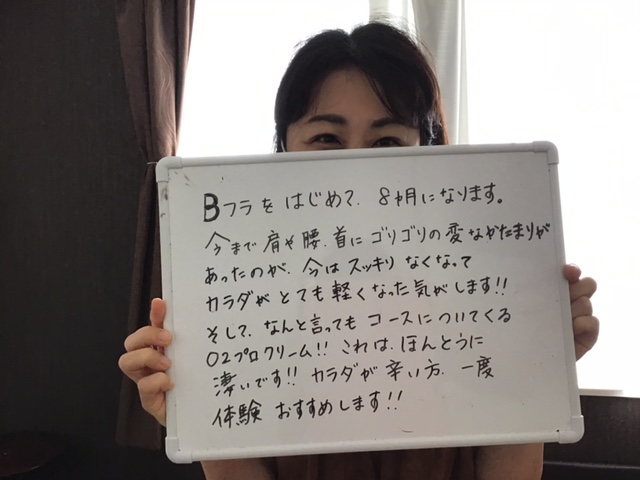 Bフラをはじめて、8ヵ月になります。
今まで肩や腰、首にゴリゴリの変なかたまりが
あったのが、今はスッキリなくなって
カラダがとても軽くなった気がします!!
そして、なんと言ってもコースについてくる
O2プロクリーム!! これは、ほんとうに
凄いです!! カラダが辛い方、一度
体験おすすめします!!